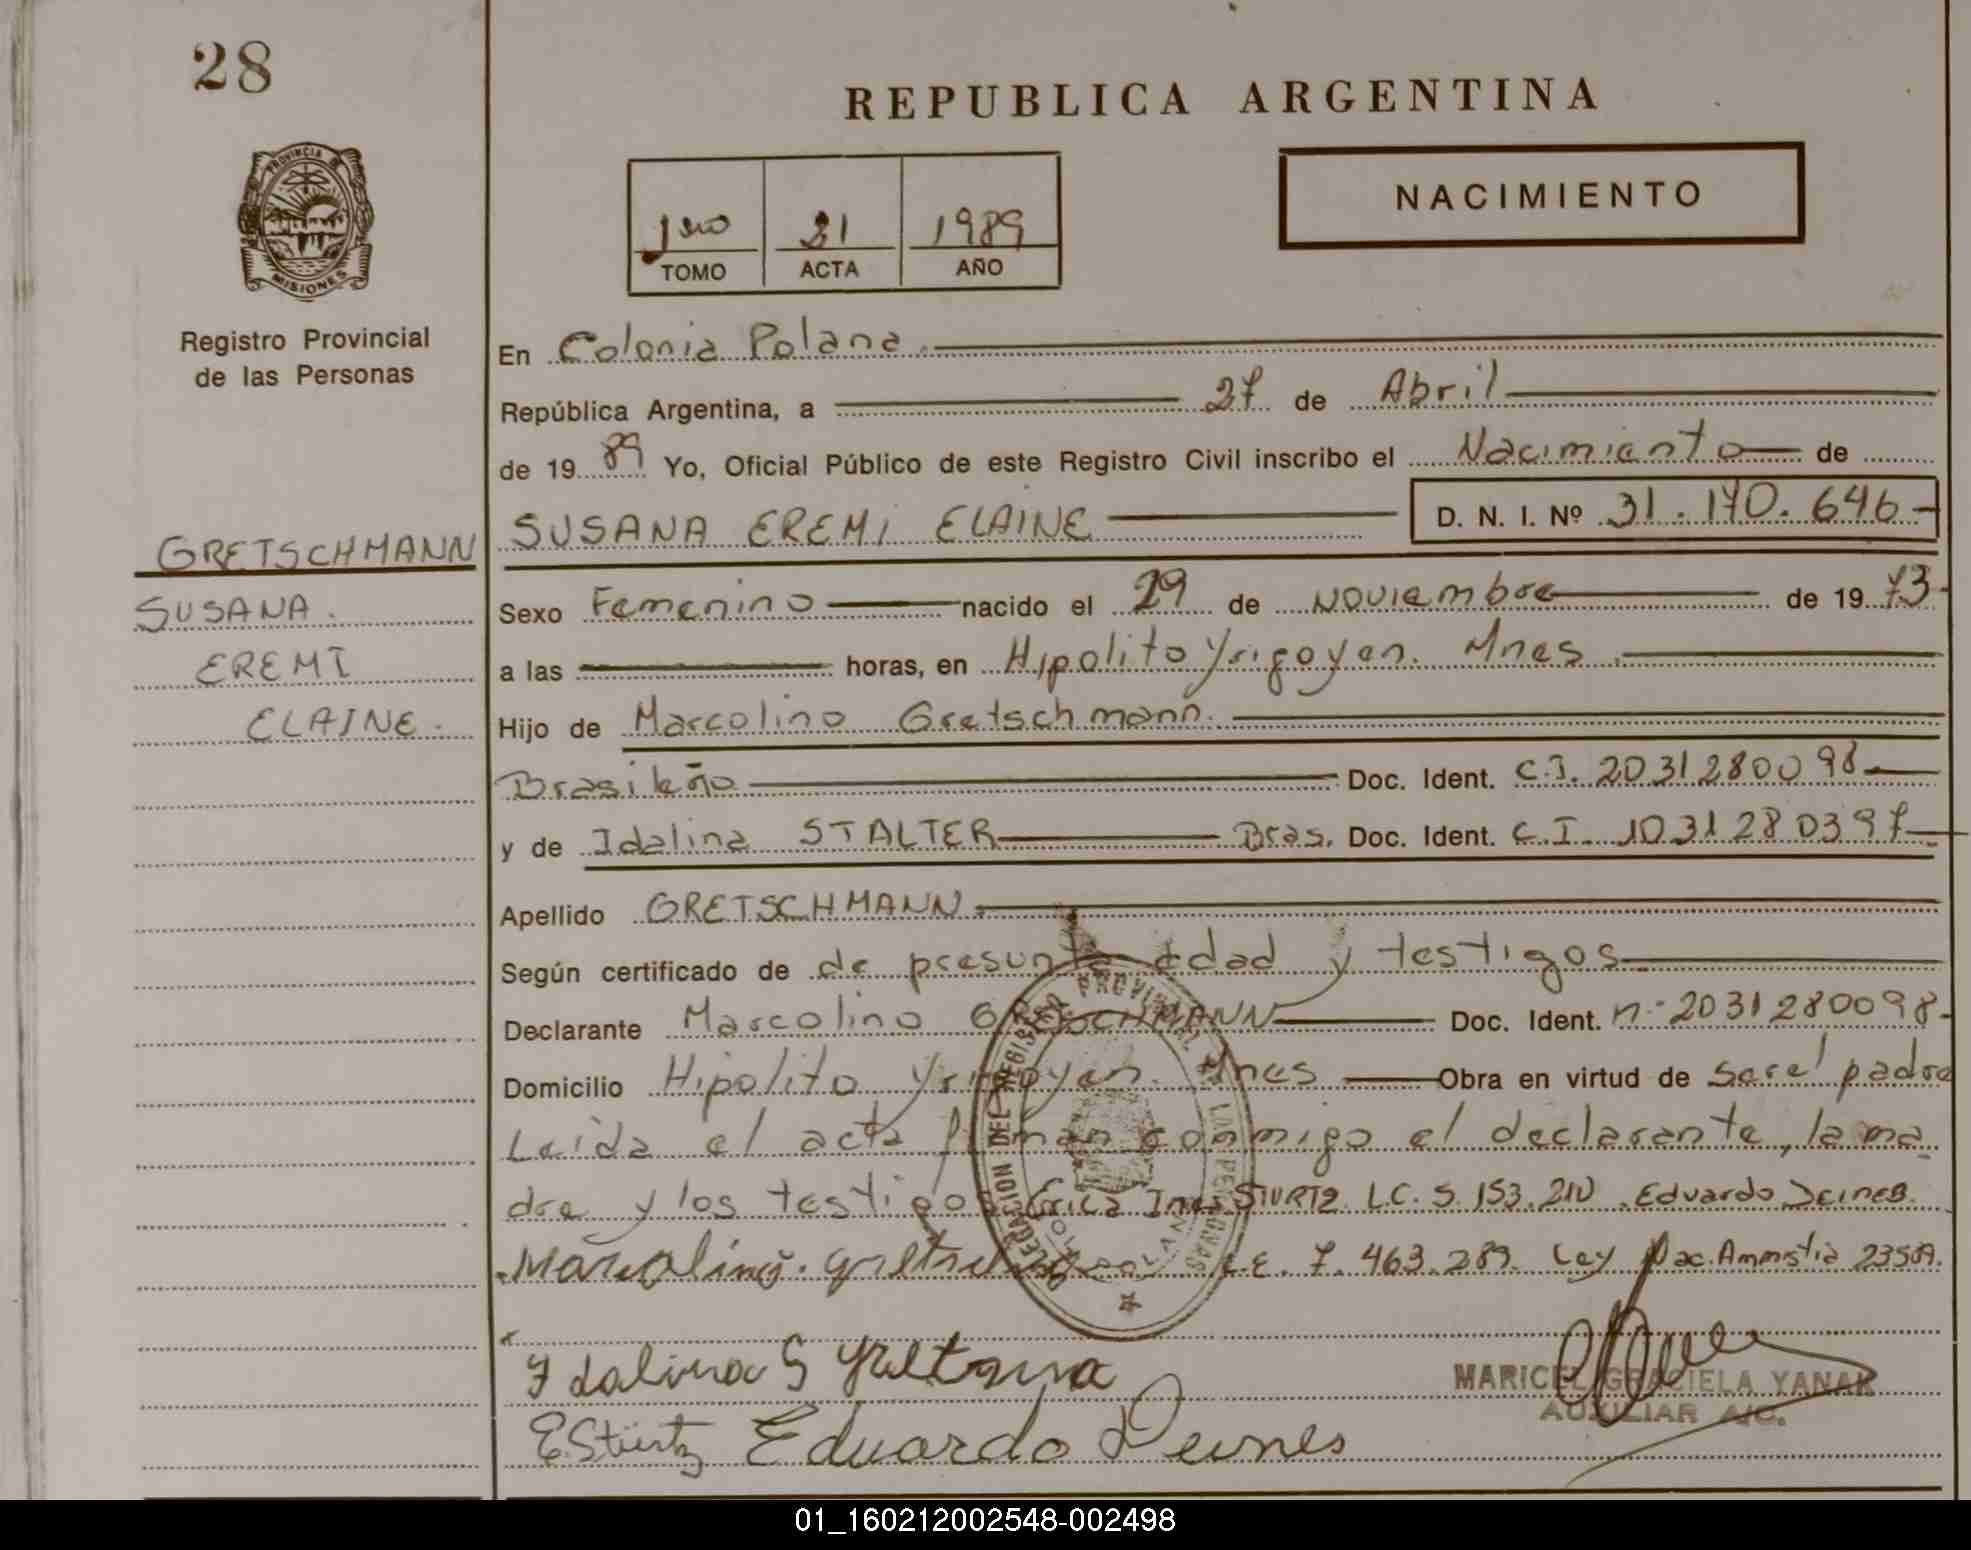 28
REPUBLICA ARGENTINA
NACIMIENTO
PROVINCIA DE
MISIONES
1ero 31 1989
TOMO ACTA AÑO
Registro Provincial
de las Personas
En Colonia Polana.
República Argentina, a 27 de Abril
de 1989 Yo, Oficial Público de este Registro Civil inscribo el Nacimiento de
SUSANA EREMI ELAINE D. N. I. Nº 31.170.646
GRETSCHMANN
SUSANA.
EREMI
ELAINE.
Sexo Femenino nacido el 29 de Noviembre de 1973
a las horas, en Hipolito Yrigoyen. Mnes.
Hijo de Marcolino Gretschmann.
Brasileño Doc. Ident. C.I. 2031280098
y de Idalina STALTER Bras. Doc. Ident. C.I. 1031280397
Apellido GRETSCHMANN.
Según certificado de de presunta edad y testigos
Declarante Marcolino GRETSCHMANN Doc. Ident. nº 2031280098
Domicilio Hipolito Yrigoyen. Mnes Obra en virtud de ser el padre
Leida el acta firman conmigo el declarante, la ma
dre y los testigos Erica Ines STURTZ L.C. 5.153.210. Eduardo
Marcolino. L.E. 7.463.289. Ley Nac. Amnistia 23509.
Idalina S
E. Stürtz Eduardo Deines
MARICEL GRACIELA YANAK
AUXILIAR A/C.
DELEGACION DEL REGISTRO PROVINCIAL DE LAS PERSONAS
01_160212002548-002498